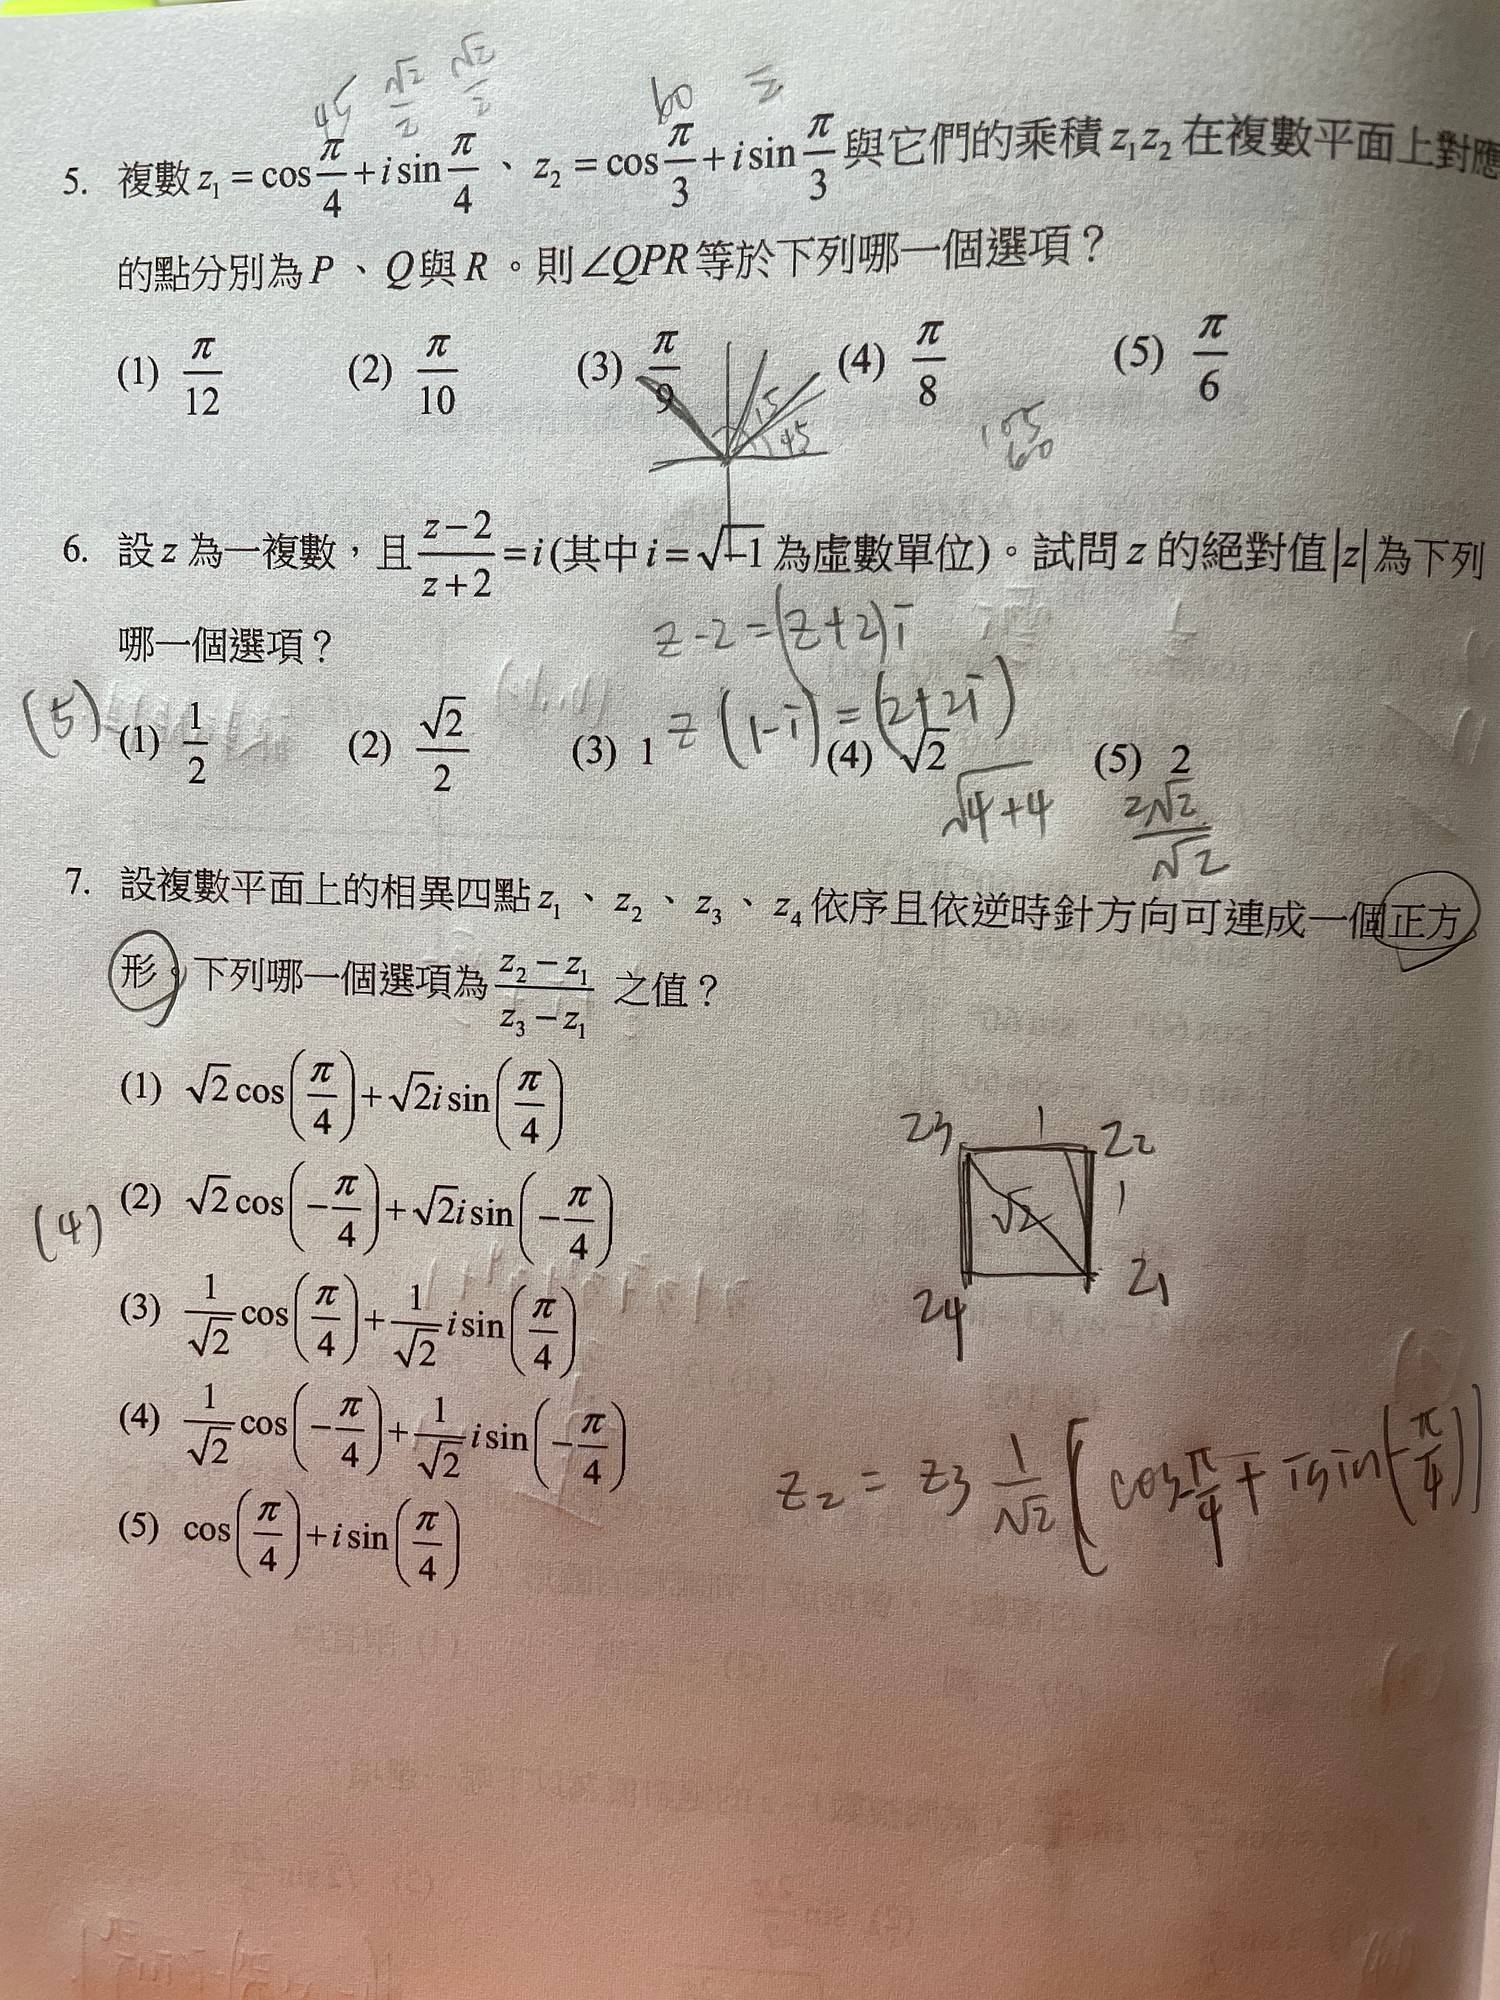 45 √2/2 √2/2 60
5. 複數 z₁ = cos π/4 + i sin π/4 、 z₂ = cos π/3 + i sin π/3 與它們的乘積 z₁z₂ 在複數平面上對應
的點分別為 P 、 Q 與 R 。則 ∠QPR 等於下列哪一個選項？
(1) π/12 (2) π/10 (3) π/9 (4) π/8 (5) π/6
15
45
105
60
6. 設 z 為一複數，且 (z−2)/(z+2) = i (其中 i = √−1 為虛數單位)。試問 z 的絕對值 |z| 為下列
哪一個選項？
z-2=(z+2)i
(5)
(1) 1/2 (2) √2/2 (3) 1 (4) √2 (5) 2
z(1-i)=(2+2i)
√4+4
2√2/√2
7. 設複數平面上的相異四點 z₁ 、 z₂ 、 z₃ 、 z₄ 依序且依逆時針方向可連成一個正方
形。下列哪一個選項為 (z₂−z₁)/(z₃−z₁) 之值？
(4)
(1) √2 cos(π/4) + √2 i sin(π/4)
(2) √2 cos(−π/4) + √2 i sin(−π/4)
(3) 1/√2 cos(π/4) + 1/√2 i sin(π/4)
(4) 1/√2 cos(−π/4) + 1/√2 i sin(−π/4)
(5) cos(π/4) + i sin(π/4)
z3 1 z2
√2 1
z4 z1
z2 = z3 1/√2 [cos-π/4 + i sin(-π/4)]